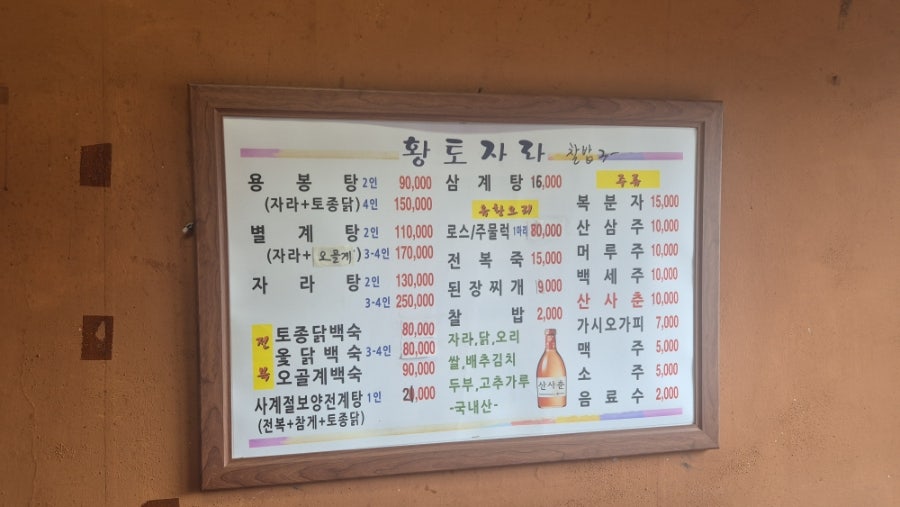 황토자라 찰밥
용봉탕 2인 90,000
(자라+토종닭) 4인 150,000
별계탕 2인 110,000
(자라+오골계) 3-4인 170,000
자라탕 2인 130,000
3-4인 250,000
전복
토종닭백숙 80,000
옻닭백숙 3-4인 80,000
오골계백숙 90,000
사계절보양전계탕 1인 20,000
(전복+참게+토종닭)
삼계탕 16,000
유황오리
로스/주물럭 1마리 80,000
전복죽 15,000
된장찌개 9,000
찰밥 2,000
자라,닭,오리
쌀,배추김치
두부,고추가루
-국내산-
산사춘
주류
복분자 15,000
산삼주 10,000
머루주 10,000
백세주 10,000
산사춘 10,000
가시오가피 7,000
맥주 5,000
소주 5,000
음료수 2,000